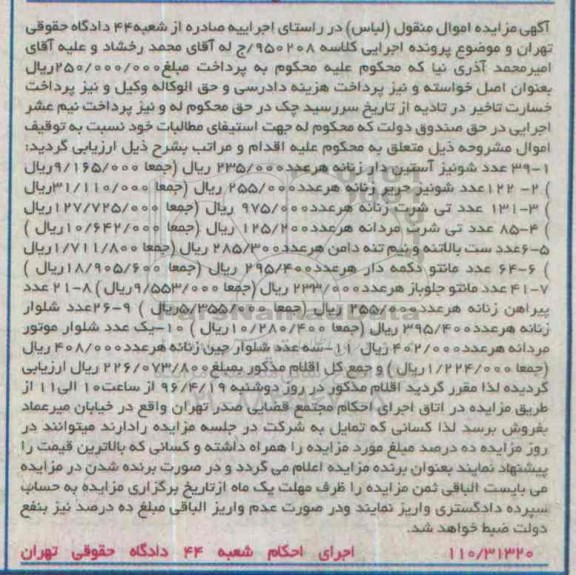 آگهی مزایده اموال منقول (لباس) در راستای اجراییه صادره از شعبه ۴۴ دادگاه حقوقی
تهران و موضوع پرونده اجرایی کلاسه ۹۵۰۲۰۸/ج له آقای محمد رخشاد و علیه آقای
امیرمحمد آذری نیا که محکوم علیه محکوم به پرداخت مبلغ ۲۵۰/۰۰۰/۰۰۰ ریال
بعنوان اصل خواسته و نیز پرداخت هزینه دادرسی و حق الوکاله وکیل و نیز پرداخت
خسارت تاخیر در تادیه از تاریخ سررسید چک در حق محکوم له و نیز پرداخت نیم عشر
اجرایی در حق صندوق دولت که محکوم له جهت استیفای مطالبات خود نسبت به توقیف
اموال مشروحه ذیل متعلق به محکوم علیه اقدام و مراتب بشرح ذیل ارزیابی گردید:
۱-۳۹ عدد شونیز آستین دار زنانه هرعدد ۲۳۵/۰۰۰ ریال (جمعا ۹/۱۶۵/۰۰۰ ریال
) ۲- ۱۲۲ عدد شونیز حریر زنانه هرعدد ۲۵۵/۰۰۰ ریال (جمعا ۳۱/۱۱۰/۰۰۰ ریال
) ۳-۱۳۱ عدد تی شرت زنانه هرعدد ۹۷۵/۰۰۰ ریال (جمعا ۱۲۷/۷۲۵/۰۰۰ ریال
) ۴-۸۵ عدد تی شرت مردانه هرعدد ۱۲۵/۲۰۰ ریال (جمعا ۱۰/۶۴۲/۰۰۰ ریال )
۵-۶ عدد ست بالاتنه و نیم تنه دامن هرعدد ۲۸۵/۳۰۰ ریال (جمعا ۱/۷۱۱/۸۰۰ ریال
) ۶-۶۴ عدد مانتو دکمه دار هرعدد ۲۹۵/۴۰۰ ریال (جمعا ۱۸/۹۰۵/۶۰۰ ریال )
۷-۴۱ عدد مانتو جلوباز هرعدد ۲۳۳/۰۰۰ ریال (جمعا ۹/۵۵۳/۰۰۰ ریال ) ۸-۲۱ عدد
پیراهن زنانه هرعدد ۲۵۵/۰۰۰ ریال (جمعا ۵/۳۵۵/۰۰۰ ریال ) ۹-۲۶ عدد شلوار
زنانه هرعدد ۳۹۵/۴۰۰ ریال (جمعا ۱۰/۲۸۰/۴۰۰ ریال ) ۱۰-یک عدد شلوار موتور
مردانه هرعدد ۴۰۲/۰۰۰ ریال ۱۱-سه عدد شلوار جین زنانه هرعدد ۴۰۸/۰۰۰ ریال
(جمعا ۱/۲۲۴/۰۰۰ ریال ) و جمع کل اقلام مذکور بمبلغ ۲۲۶/۰۷۳/۸۰۰ ریال ارزیابی
گردیده لذا مقرر گردید اقلام مذکور در روز دوشنبه ۹۶/۴/۱۹ از ساعت ۱۰ الی ۱۱ از
طریق مزایده در اتاق اجرای احکام مجتمع قضایی صدر تهران واقع در خیابان میرعماد
بفروش برسد لذا کسانی که تمایل به شرکت در جلسه مزایده رادارند میتوانند در
روز مزایده ده درصد مبلغ مورد مزایده را همراه داشته و کسانی که بالاترین قیمت را
پیشنهاد نمایند بعنوان برنده مزایده اعلام می گردد و در صورت برنده شدن در مزایده
می بایست الباقی ثمن مزایده را ظرف مهلت یک ماه ازتاریخ برگزاری مزایده به حساب
سپرده دادگستری واریز نمایند ودر صورت عدم واریز الباقی مبلغ ده درصد نیز بنفع
دولت ضبط خواهد شد.
۱۱۰/۳۱۳۲۰ اجرای احکام شعبه ۴۴ دادگاه حقوقی تهران